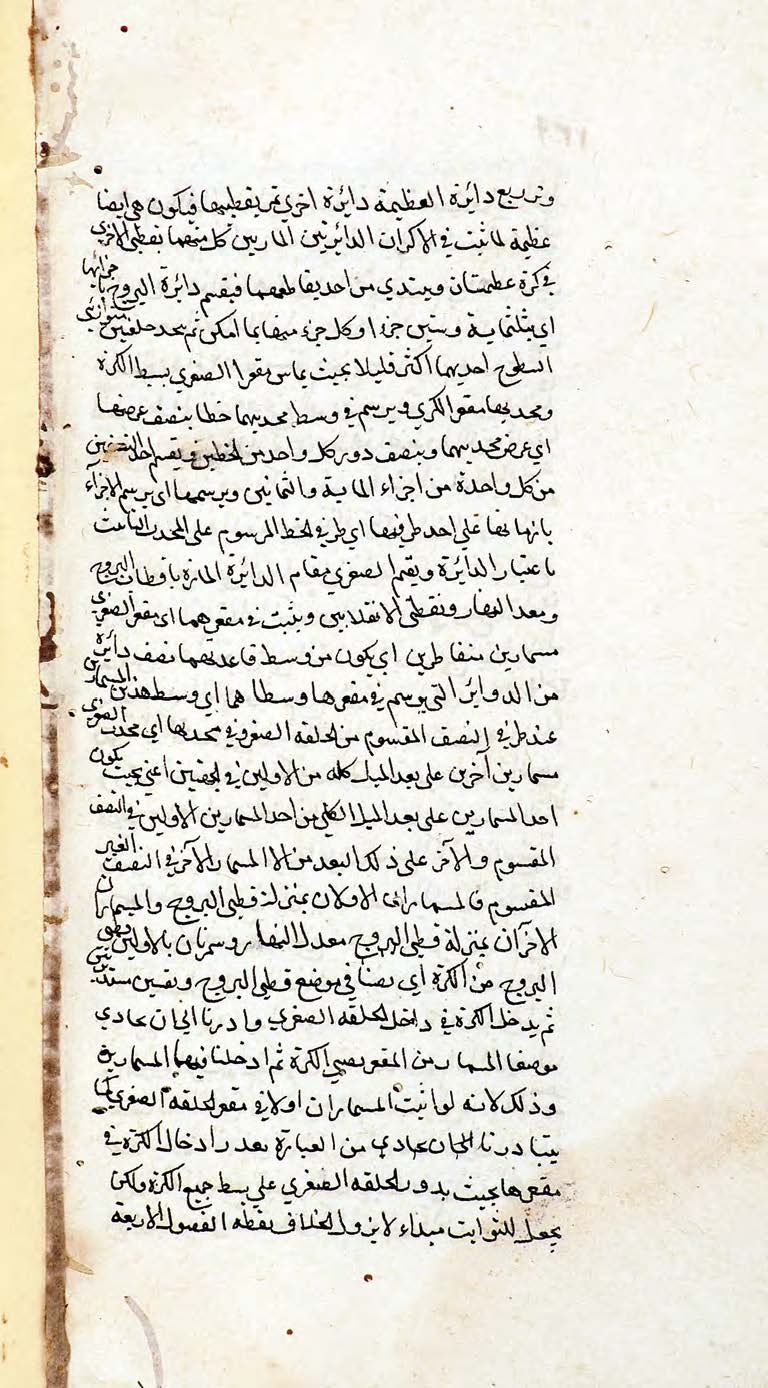 وتربيع دائرة العظيمة دائرة اخري تمر بقطبيها فيكون هي ايضا
عظيمة لما ثبت في الاكران الدائرتين المارتين كل منهما بقطبي الاخري
في كرة عظيمتان ويبتدي من احد تقاطعهما فيقسم دائرة البروج باجزائها
اي بثلثماية وستين جزءا وكل جزء منها بما امكن ثم يتخذ حلقتين متوازيتي
السطوح احديهما اكثر قليلا بحيث يماس مقعرا الصغري بسط الكرة
ومحدبها مقعر الكبري ويرسم في وسط محدبيهما خطا بنصف عرضها
اي عرض محدبيهما وينصف دور كل واحد من الخطين ويقسم احد النصفين
من كل واحدة من اجزاء الماية والثمانين ويرسمها اي يرسم الاجزاء
بازمانها علي احد طرفيها اي طرفي الخط المرسوم علي المحدب الثابت
باعتبار الدائرة ويقيم الصغري مقام الدائرة المارة باقطاب البروج
ومعدل النهار ونقطتي الانقلابين ويثبت في مقعرهما اي مقعر الصغري
مسمارين متقاطرين اي يكون من وسط قاعدتهما نصف دائرة
من الدواير التي يرسم في مقعرها وسطاهما اي وسط هذين المسمارين
عند طرفي النصف المقسوم من الحلقة الصغري وفي محدبها اي محدب الصغري
مسمارين آخرين علي بعد الميل كله من الاولين في الجهتين اعني بحيث يكون
احد المسمارين علي بعد الميل الكلي من احد المسمارين الاولين في النصف
المقسوم والآخر علي ذلك البعد من الا المسمار الآخر في النصف الغير
المقسوم فالمسماران الاولان بمنزلة قطبي البروج والمسماران
الآخران بمنزلة قطبي البروج معدل النهار وسمرنا بالاولين قطبي
البروج من الكرة اي بصنافي موضع قطبي البروج وبقبين مستديرتين
ثم يدخل الكرة في داخل الحلقة الصغري وادرنا الي ان يحاذي
موضعا المسمارين المقعر بصبي الكرة ثم ادخلنا فيهما المسمارين
وذلك لانه لو اثبت المسماران اولا في مقعر الحلقة الصغري كما
يتبادر من العبارة تعذر ادخال الكرة في
مقعرها بحيث يدور الحلقة الصغري علي بسط جميع الكرة ولكن
يجعل للثوابت مبداء لايزول بخلاف نقطة الفصول الاربعة